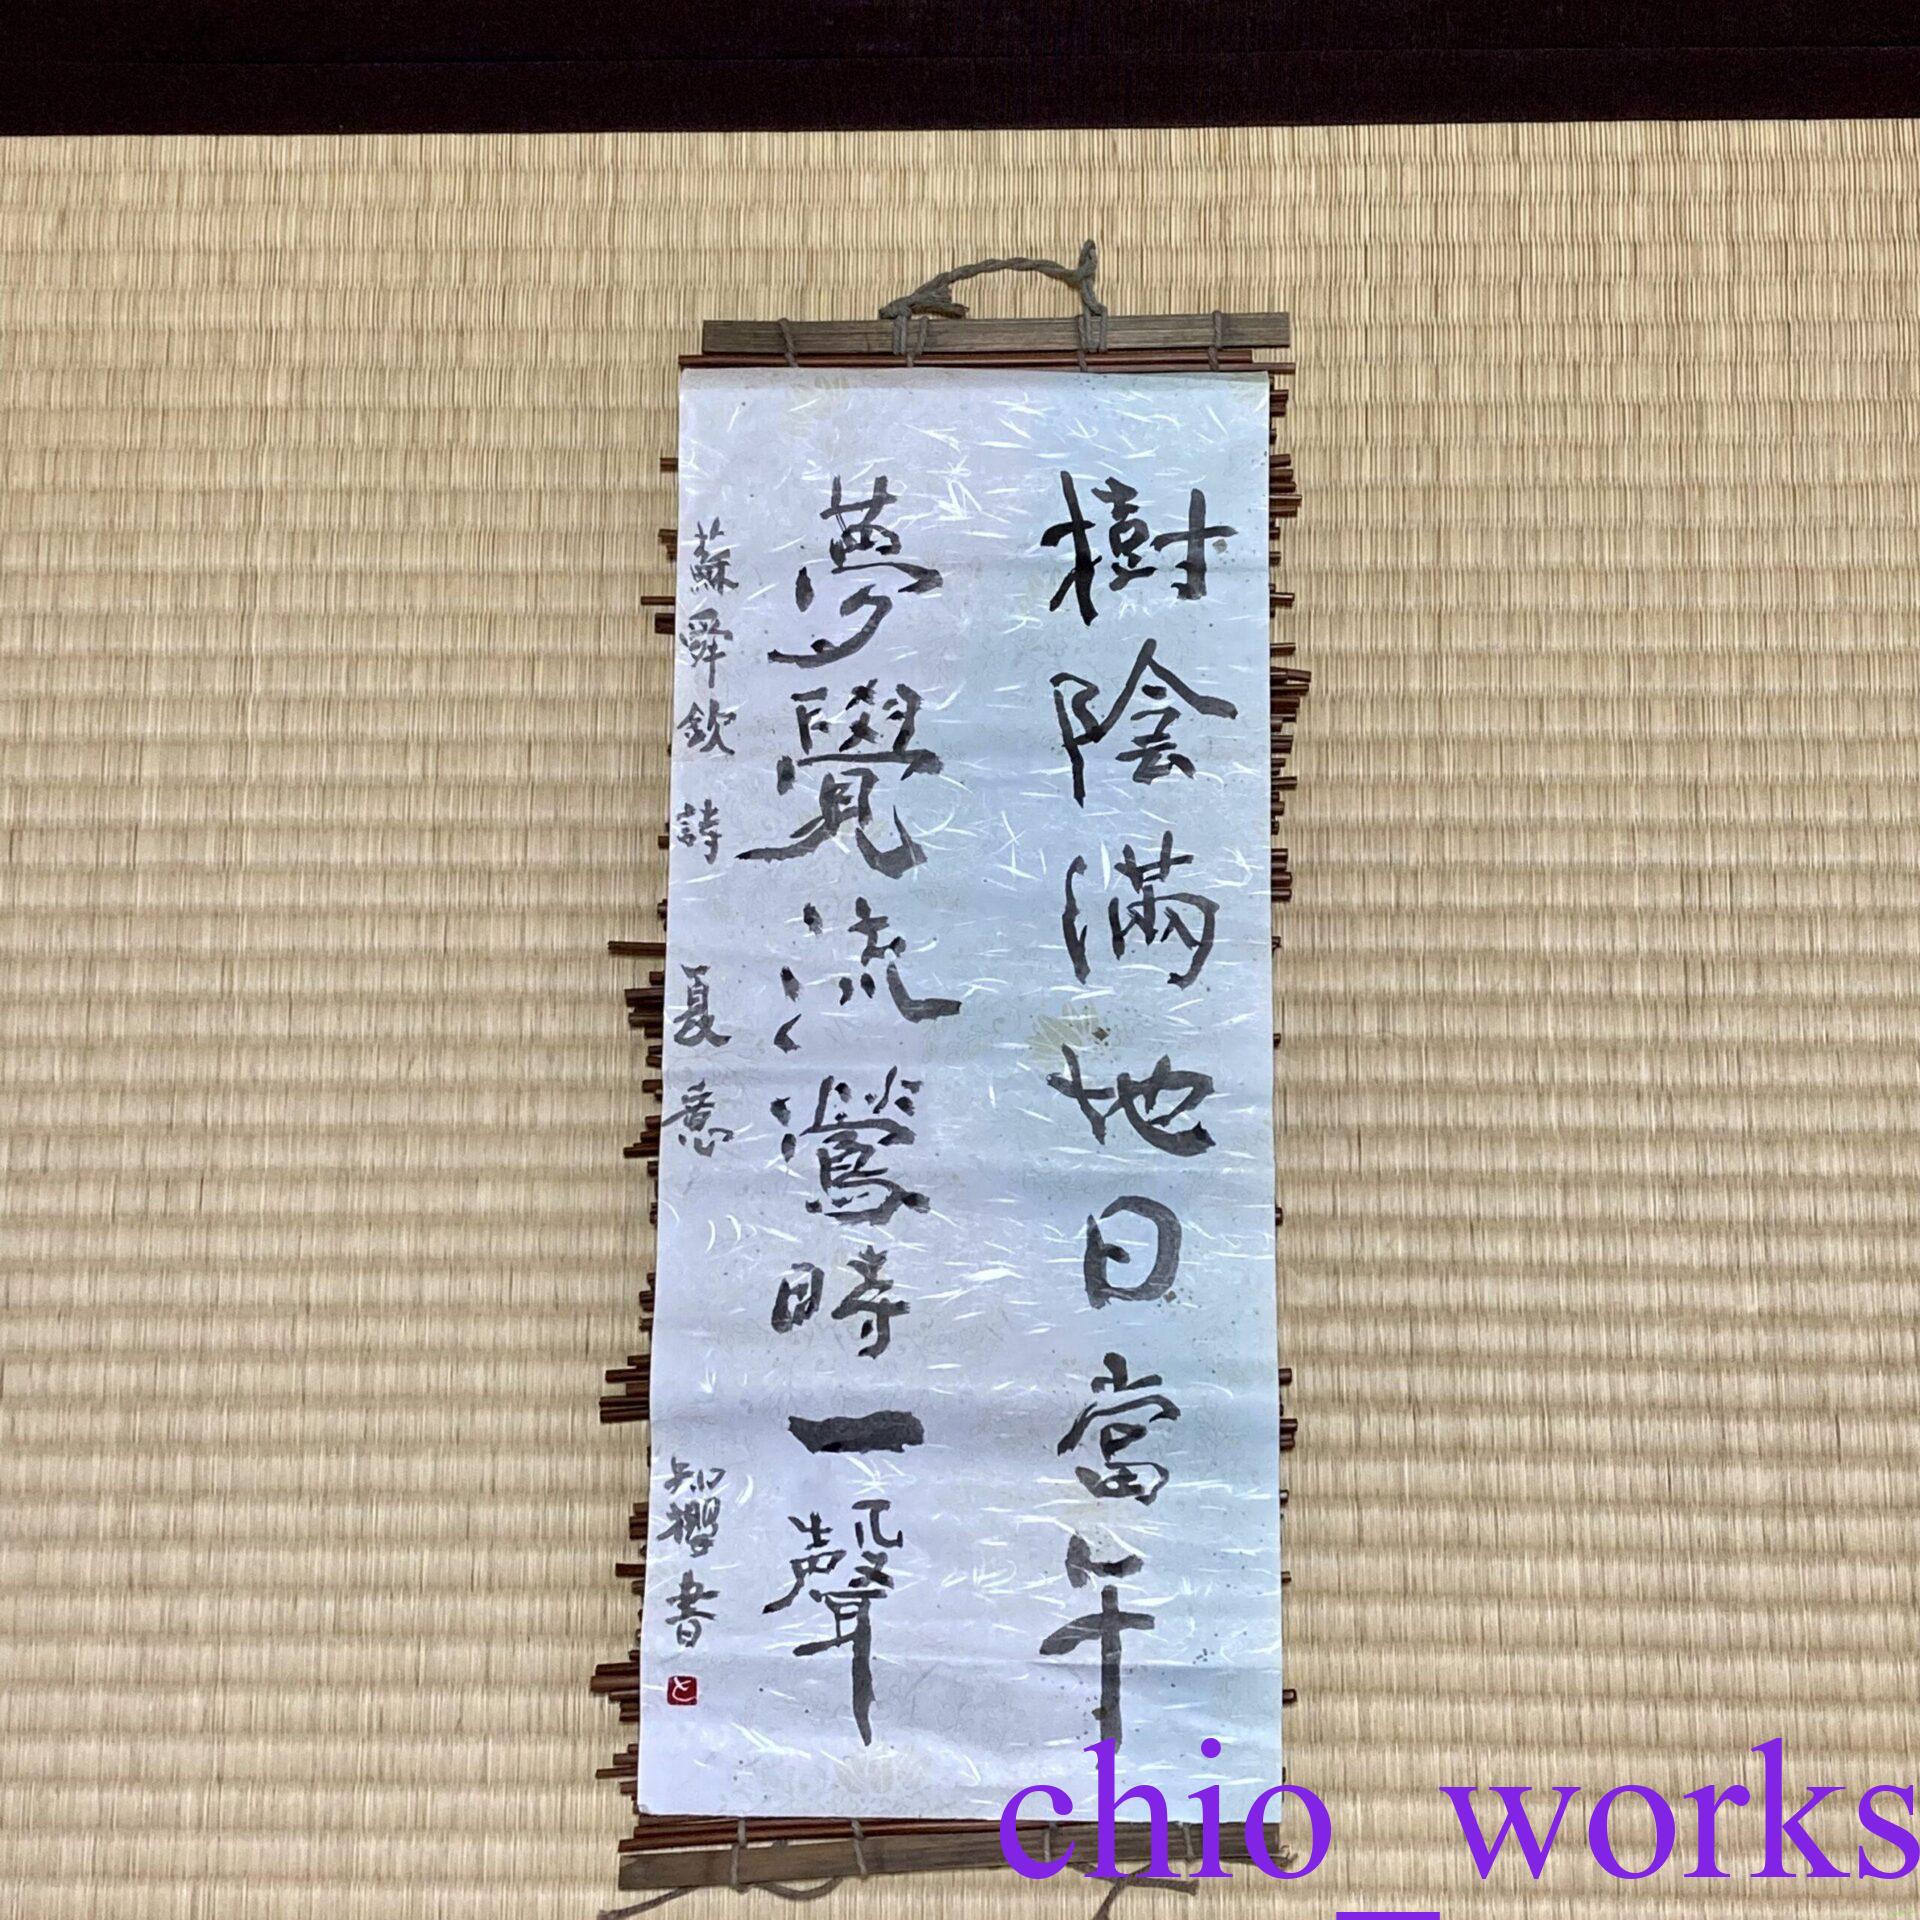 樹陰滿地日當午
夢覺流鶯時一聲
蘇舜欽詩 夏意 知櫻書
と
chio_works